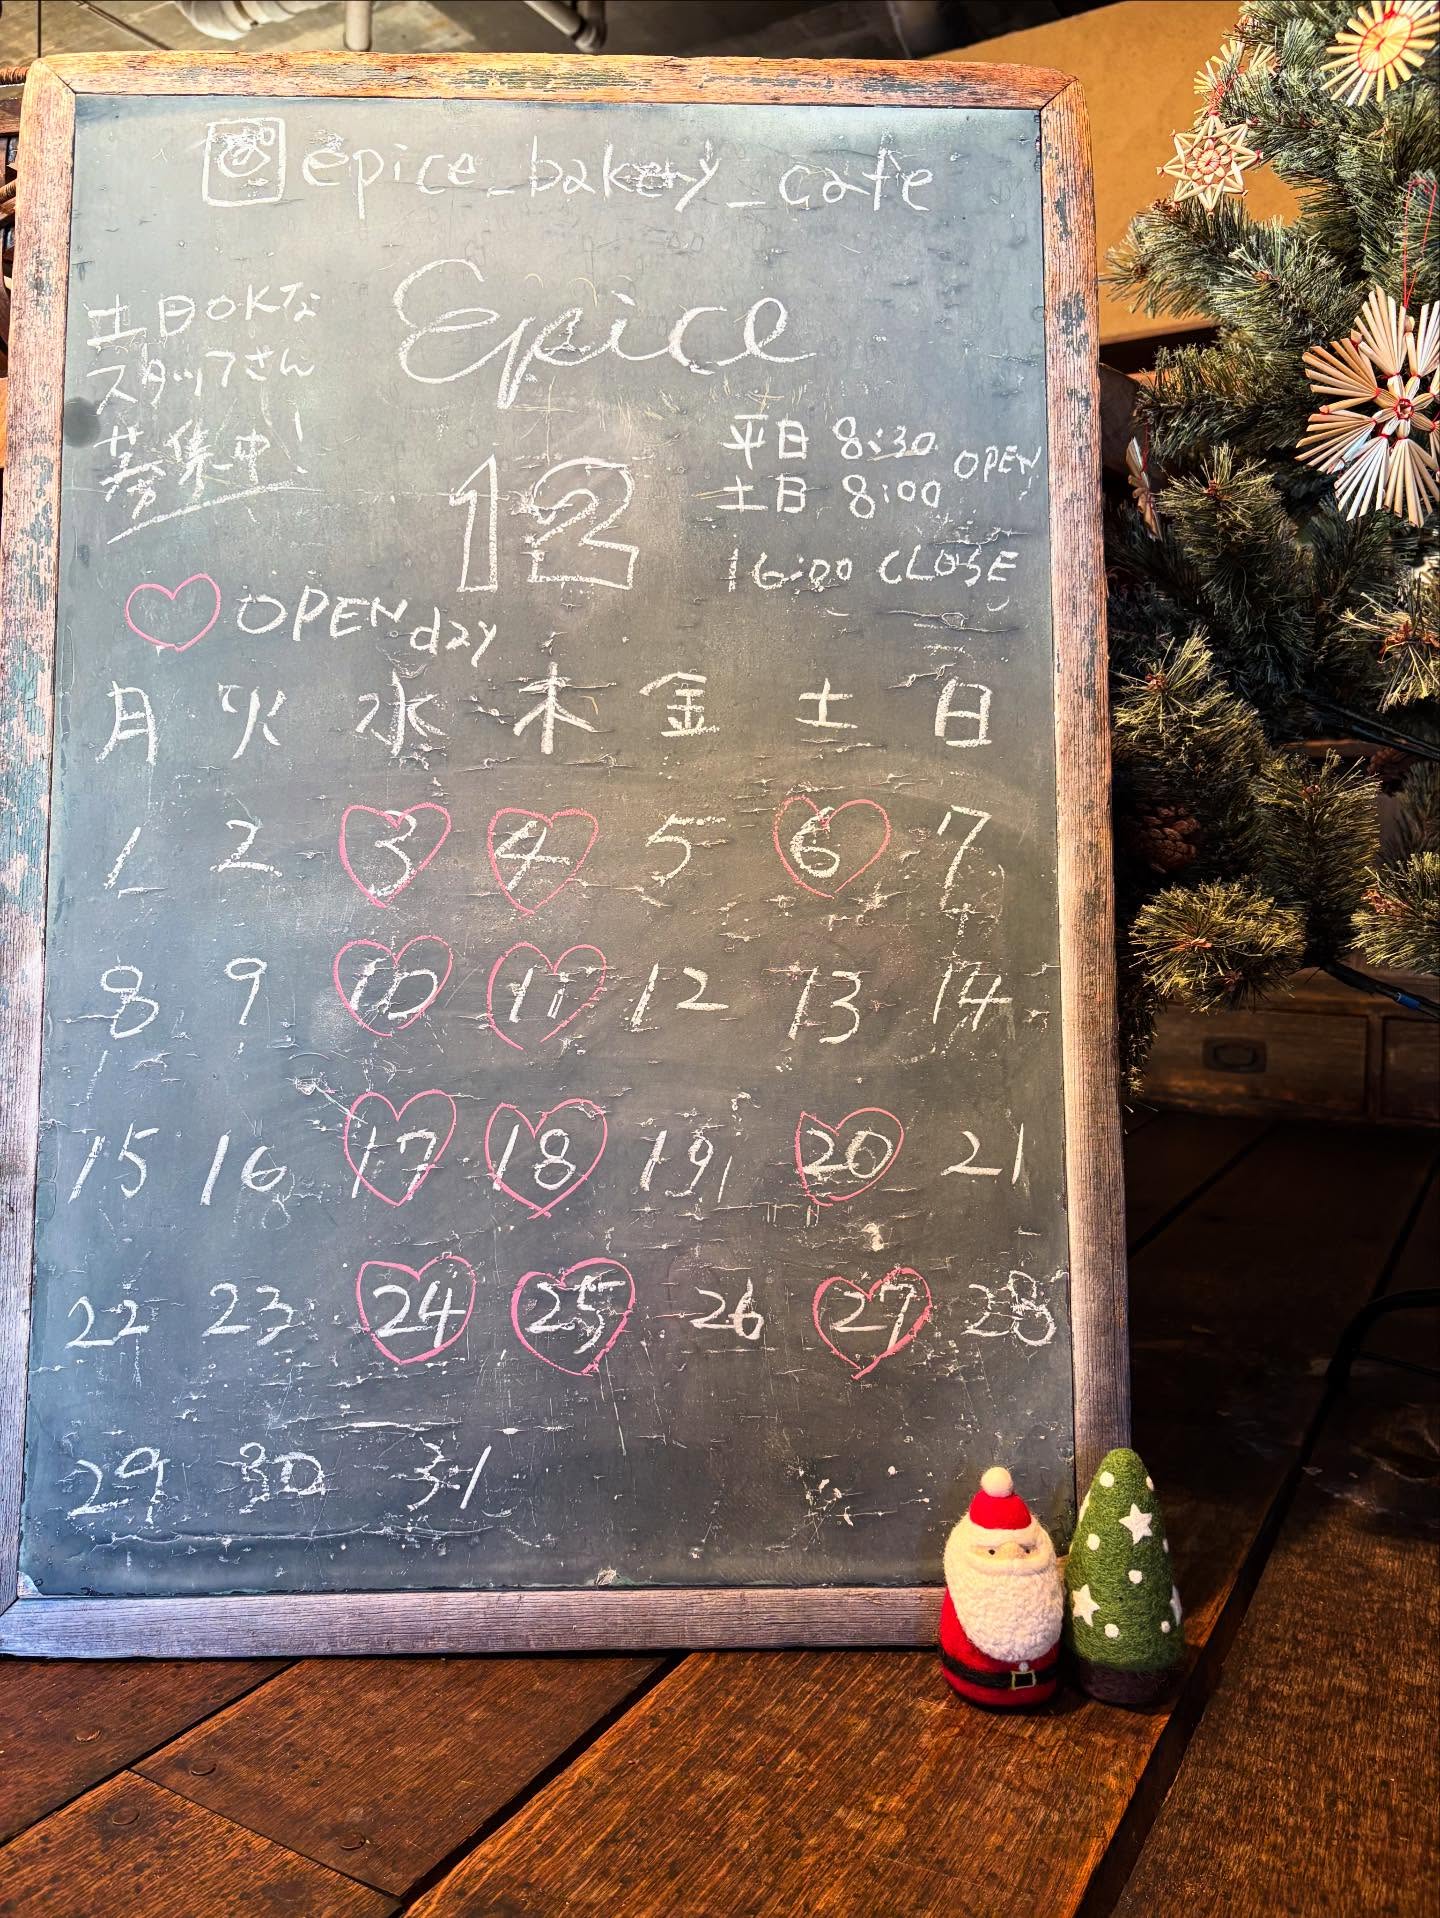 epice_bakery_cafe
Epice
土日OKな
スタッフさん
募集中!
12
平日 8:30 OPEN
土日 8:00
16:00 CLOSE
OPEN day
月 火 水 木 金 土 日
1 2 3 4 5 6 7
8 9 10 11 12 13 14
15 16 17 18 19 20 21
22 23 24 25 26 27 28
29 30 31